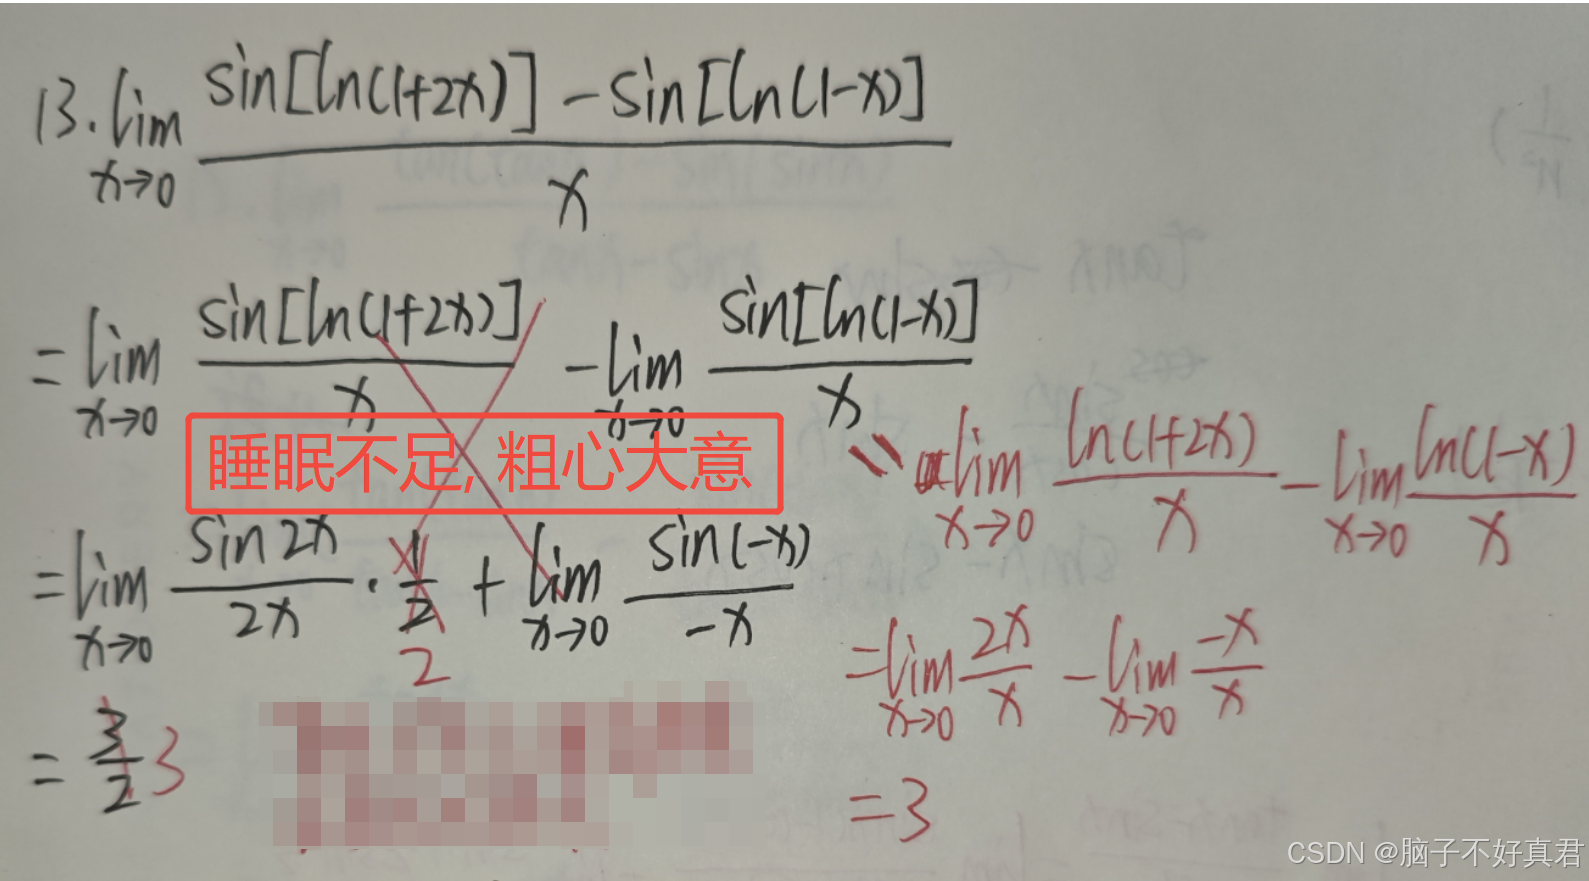 13. lim x→0 sin[ln(1+2x)] - sin[ln(1-x)] / x
= lim x→0 sin[ln(1+2x)] / x - lim x→0 sin[ln(1-x)] / x
睡眠不足, 粗心大意
= lim x→0 sin2x / 2x · 1/2 + lim x→0 sin(-x) / -x
2
= 3/2 3
lim x→0 ln(1+2x) / x - lim x→0 ln(1-x) / x
= lim x→0 2x / x - lim x→0 -x / x
= 3
CSDN @脑子不好真君